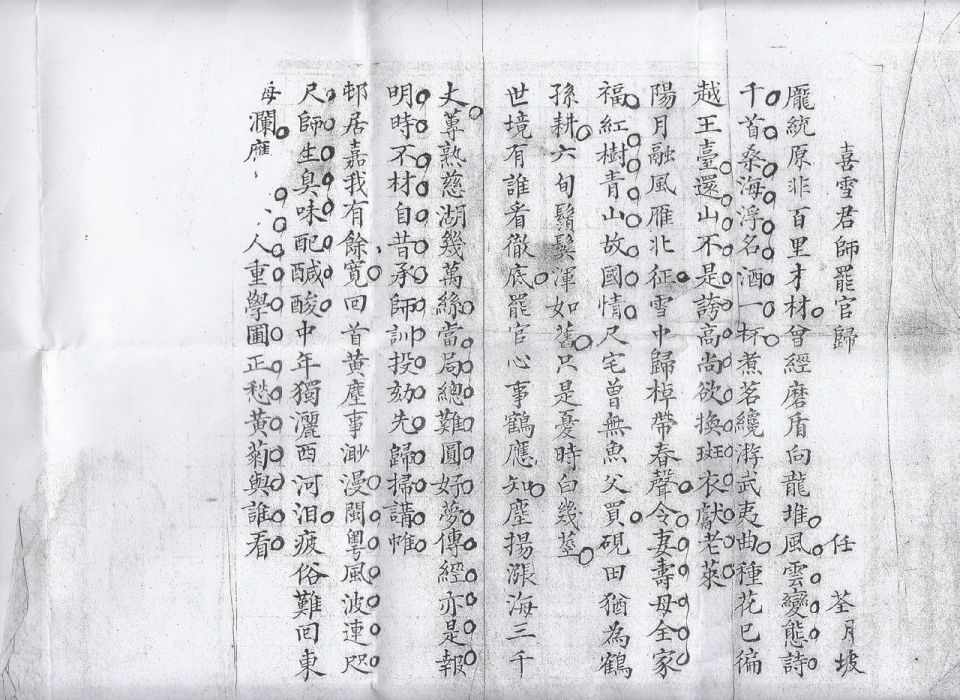 喜雪君師罷官歸
任 荃月坡
龐統原非百里才材曾經磨盾向龍堆風雲變態詩
千首桑海浮名酒一杯煮茗纔游武夷曲種花已徧
越王臺還山不是誇高尚欲換斑衣獻老萊
陽月融風雁北征雪中歸棹帶春聲令妻壽母全家
福紅樹青山故國情尺宅曾無魚父買硯田猶為鶴
孫耕六旬鬚鬢渾如舊只是憂時白幾莖
世境有誰看徹底罷官心事鶴應知塵揚漲海三千
丈蓴熟慈湖幾萬絲當局總難圓好夢傳經亦是報
明時不材自昔承師訓投劾先歸掃講帷
邨居嘉我有餘寬回首黃塵事渺漫閩粵風波連咫
尺師生臭味配鹹酸中年獨灑西河泪疲俗難回東
瀾人重學圃正愁黃菊與誰看